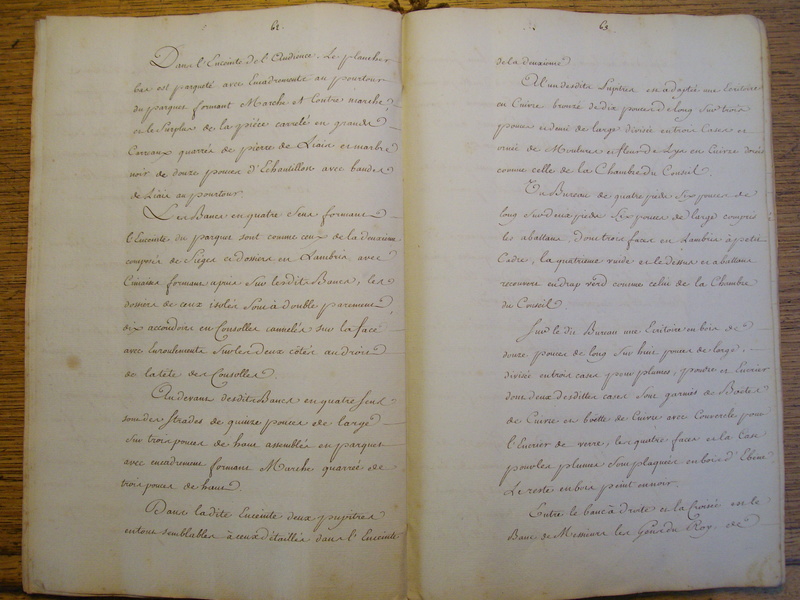 62.
Dans l'Enceinte de l'Audience, Le plancher
bas est parqueté avec Encadrements au pourtour
du parquet formant Marche et Contre marche,
et le Surplus de la piéce carrelé en grands
Carreaux quarrés de pierre de Liais et marbre
noir de douze pouces d'Echantillon avec bandes
de Liais au pourtour.
Les Bancs en quatre Sens formans
l'Enceinte du parquet sont comme ceux de la deuxieme
composés de Siéges et dossiers en Lambris, avec
Cimaises formans apuis Sur lesdits Bancs, les
dossiers de ceux isolés Sont à double parement,
dix accoudoirs en Consolles cannelés sur la face
avec enroulements Sur les deux côtés au droit
de la tête des Consolles.
Au devant desdits Bancs en quatre Sens
sont des Strades de quinze pouces de large
Sur trois pouces de haut assemblés en parquet
avec encadrement formant Marche quarrée de
trois pouces de haut.
Dans ladite Enceinte deux pupitres
en tout semblables à ceux détaillés dans l'Enceinte
63.
de la deuxième.
A l'un desdits Pupitres est adapté une Ecritoire
en Cuivre bronzé de dix pouces de long Sur trois
pouces et demi de large divisée en trois Cases et
ornée de Moulures et fleurs de Lys en Cuivre dorés
comme celle de la Chambre du Conseil.
Un Bureau de quatre pieds Six pouces de
long Sur deux pieds Six pouces de large compris
les abattans, dont trois faces en Lambris à petit
Cadre, la quatrieme vuide et le dessus et abattans
recouvert en drap verd comme celui de la Chambre
du Conseil.
Sur le dit Bureau une Ecritoire en bois de
douze pouces de long Sur huit pouces de large,
divisée en trois cases pour plumes, poudre et Encrier
dont deux desdites cases Sont garnies de Boëtes
de Cuivre en boëtte de Cuivre avec Couvercle pour
l'Encrier de verre, les quatre faces et la Case
pour les plumes Sont plaquées en bois d'Ebene
Le reste en bois peint en noir.
Entre le banc à droite et la Croisée est le
Banc de Messieurs les Gens du Roy, de